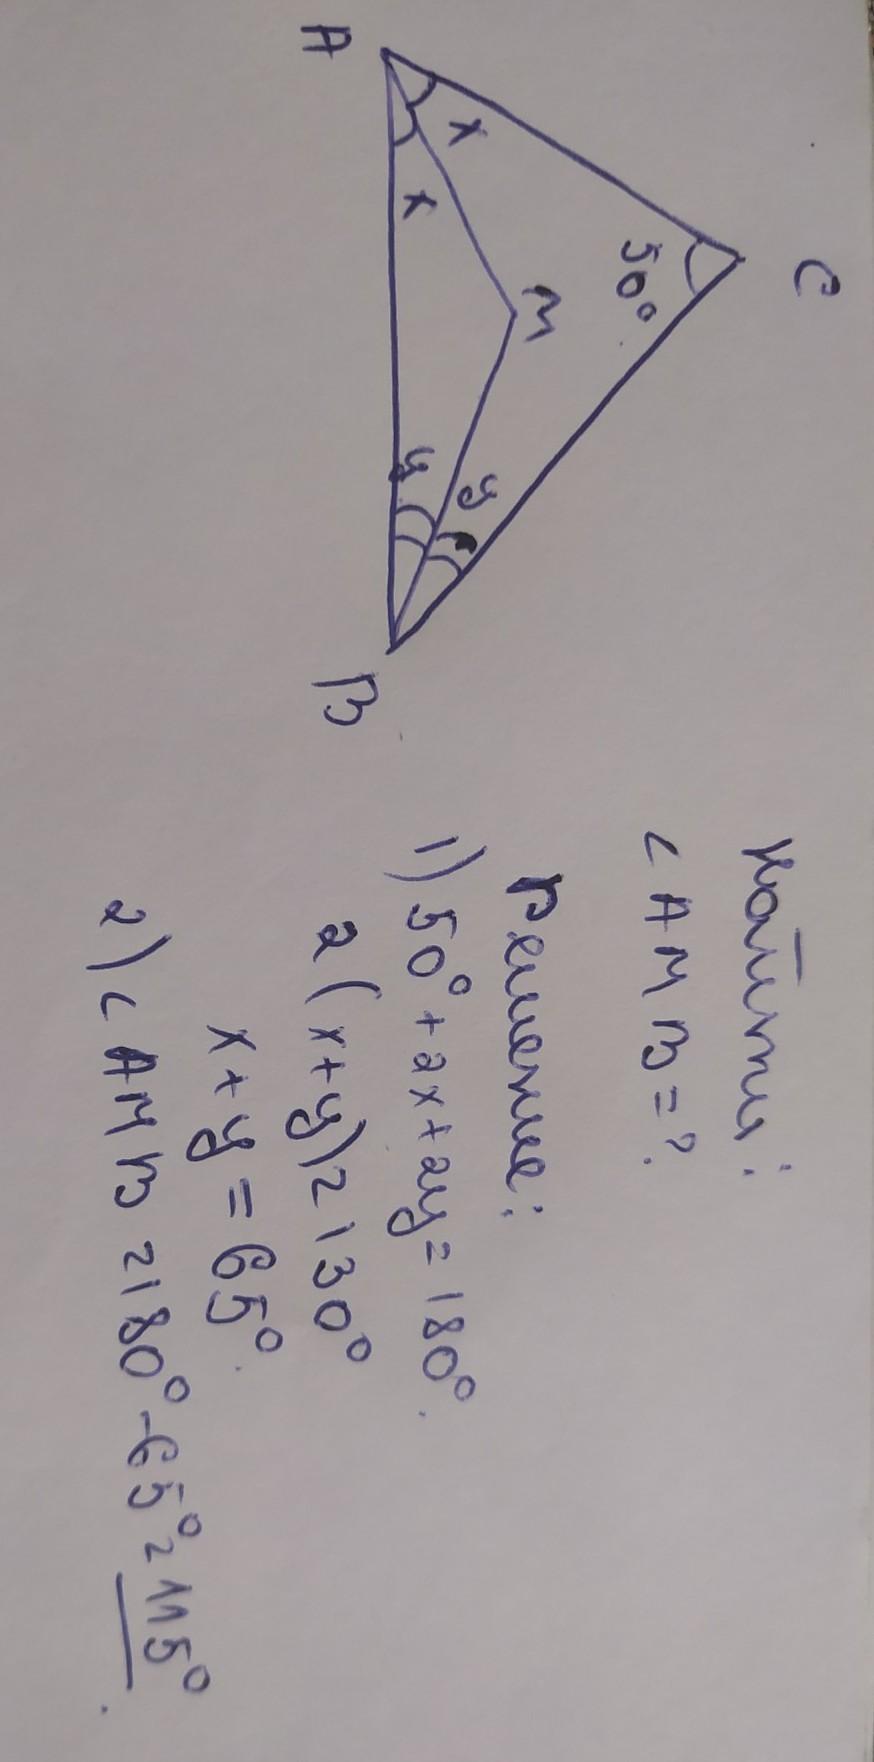 C
50°
A
x
x
M
y
y
B
Найти:
∠AMB=?
Решение:
1) 50°+2x+2y=180°.
2(x+y)=130°
x+y=65°.
2) ∠AMB=180°-65°=115°.